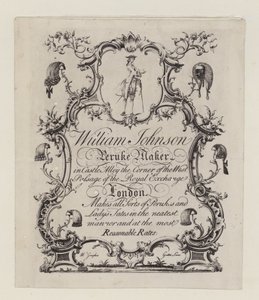 William Johnson
Peruke Maker
in Castle Alley the Corner of the West
Passage of the Royal Exchange
London
Makes all Sorts of Perukes and
Lady's Tates in the neatest
manner and at the most
Reasonable Rates